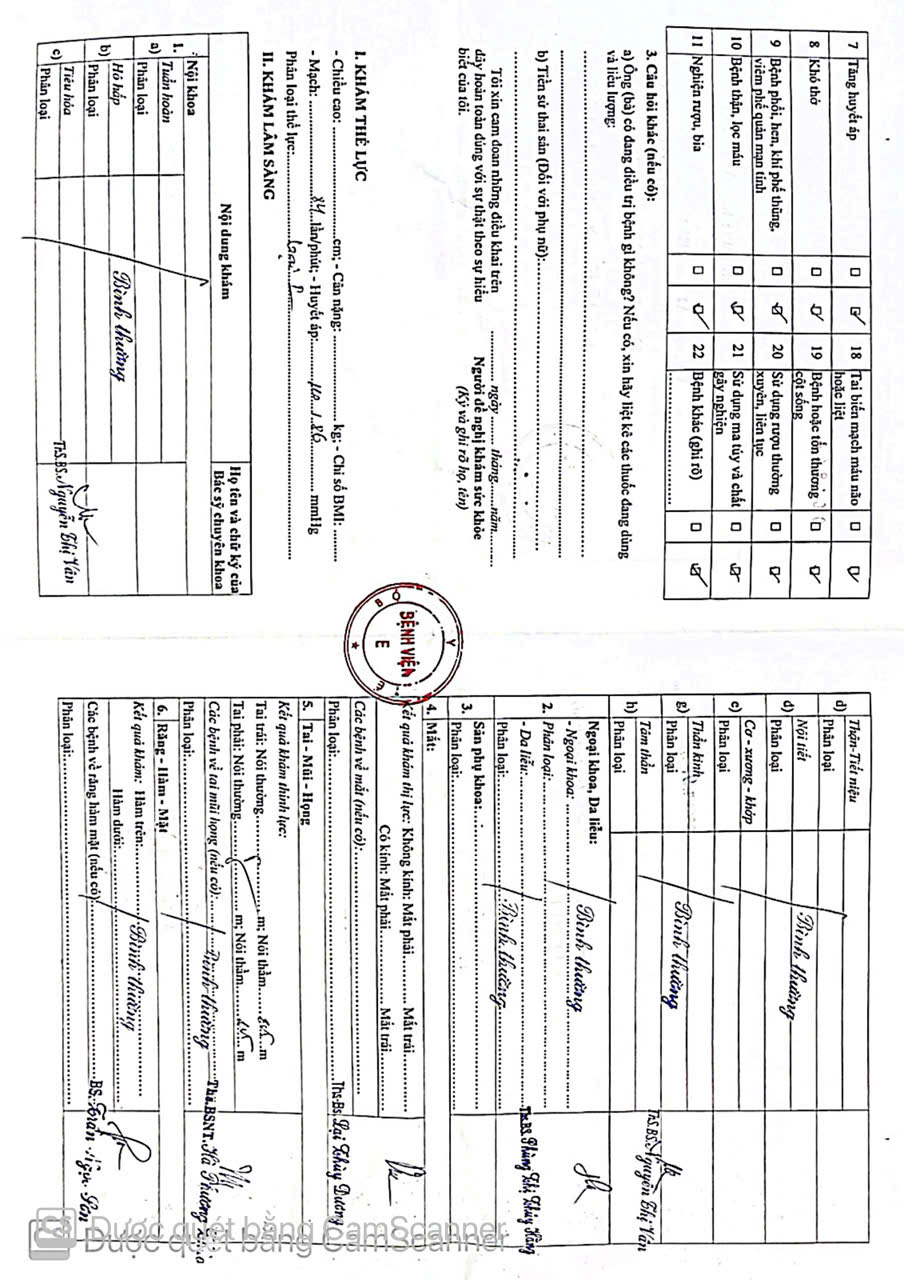 7 Tăng huyết áp □ ☑ 18 Tai biến mạch máu não hoặc liệt □ ☑
8 Khó thở □ ☑ 19 Bệnh hoặc tổn thương cột sống □ ☑
9 Bệnh phổi, hen, khí phế thũng, viêm phế quản mạn tính □ ☑ 20 Sử dụng rượu thường xuyên, liên tục □ ☑
10 Bệnh thận, lọc máu □ ☑ 21 Sử dụng ma túy và chất gây nghiện □ ☑
11 Nghiện rượu, bia □ ☑ 22 Bệnh khác (ghi rõ) □ ☑
3. Câu hỏi khác (nếu có):
a) Ông (bà) có đang điều trị bệnh gì không? Nếu có, xin hãy liệt kê các thuốc đang dùng
và liều lượng:
b) Tiền sử thai sản (Đối với phụ nữ):
Tôi xin cam đoan những điều khai trên
đây hoàn toàn đúng với sự thật theo sự hiểu
biết của tôi.
ngày tháng năm
Người đề nghị khám sức khỏe
(Ký và ghi rõ họ, tên)
I. KHÁM THỂ LỰC
- Chiều cao: cm; - Cân nặng: kg; - Chỉ số BMI:
- Mạch: 84 lần/phút; - Huyết áp: / 86 mmHg
Phân loại thể lực: Loại
II. KHÁM LÂM SÀNG
Nội dung khám
Họ tên và chữ ký của
Bác sỹ chuyên khoa
1. Nội khoa
a) Tuần hoàn
Phân loại
b) Hô hấp
Phân loại
c) Tiêu hóa
Phân loại
Bình thường
ThS.BS. Nguyễn Thị Vân
BỘ Y
BỆNH VIỆN
E
d) Thận-Tiết niệu
Phân loại
đ) Nội tiết
Phân loại
Bình thường
e) Cơ - xương - khớp
Phân loại
g) Thần kinh
Phân loại
Bình thường
h) Tâm thần
Phân loại
ThS.BS. Nguyễn Thị Vân
2. Ngoại khoa, Da liễu:
- Ngoại khoa:
Bình thường
Phân loại:
- Da liễu:
Phân loại:
Bình thường
ThS.BS. Phùng Thị Thúy Hằng
3. Sản phụ khoa:
Phân loại:
4. Mắt:
Kết quả khám thị lực: Không kính: Mắt phải Mắt trái
Có kính: Mắt phải Mắt trái
Các bệnh về mắt (nếu có):
Phân loại:
Ths-Bs. Lại Thùy Dương
5. Tai - Mũi - Họng
Kết quả khám thính lực:
Tai trái: Nói thường m; Nói thầm m
Tai phải: Nói thường m; Nói thầm m
Các bệnh về tai mũi họng (nếu có):
Phân loại:
Bình thường
ThS.BSNT. Hà Phương
6. Răng - Hàm - Mặt
Kết quả khám: Hàm trên:
Hàm dưới:
Bình thường
Các bệnh về răng hàm mặt (nếu có)
Phân loại:
BS. Trần Ngọc Sơn
Được quét bằng CamScanner